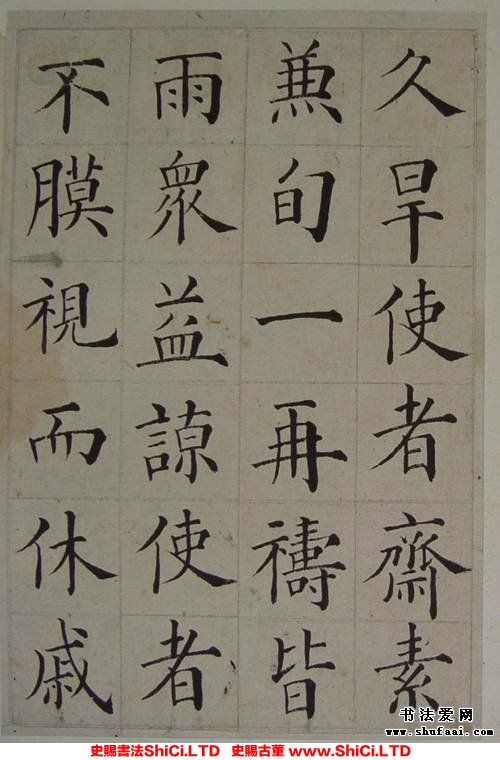 久旱使者齋素
兼旬一再禱皆
雨眾益諒使者
不膜視而休戚
书法爱网
www.shufaai.com
史賜書法ShiCi.LTD 史賜古董 www.ShiCi.LTD